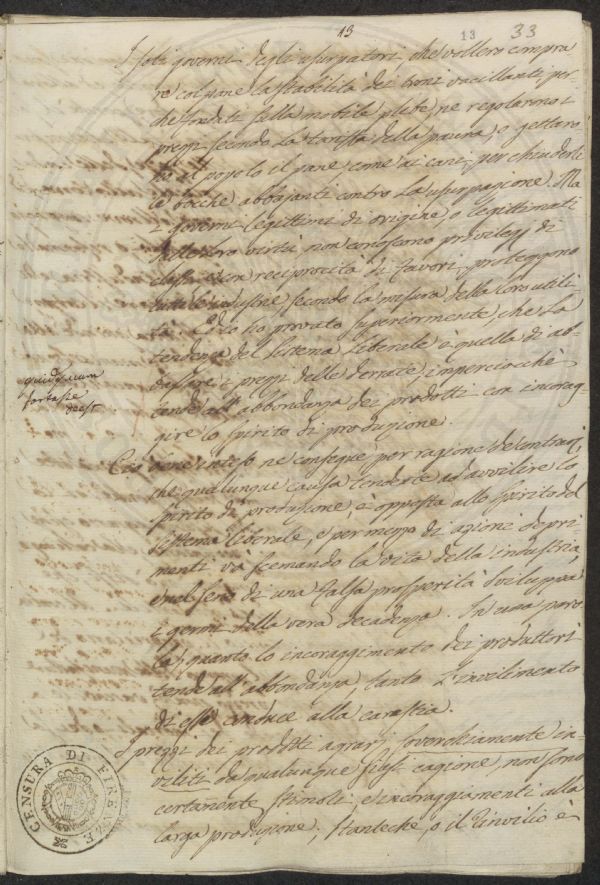 13
13 33
I soli governi degli usurpatori, che vollero compra
re col pane la stabilità dei troni vacillanti per
che fondati sulla mobile plebe, ne regolarono i
prezzi secondo la tariffa della paura, e gettaro
no al popolo il pane, come ai cani, per chiuderle
le bocche abbajanti contro la usurpazione. Ma
i governi legittimi di origine, o legittimati
dalle loro virtù non conoscono privilegj di
classi e con reciprocità di favori proteggono
tutte le industrie, secondo la misura della loro utili
tà. Ed io ho provato superiormente, che la
tendenza del sistema liberale è quella di ab
bassare i prezzi delle derrate, imperciocchè
tende all' abbondanza dei prodotti con incorag
gire lo spirito di produzione.
quidquam
fortasse
deest
Ciò bene inteso ne consegue per ragione de' contrarj,
che qualunque causa tendente ad avvilire lo
spirito di produzione, è opposta allo spirito del
sistema liberale, e per mezzo di azioni depri
menti và scemando la vita della industria,
e nel seno di una falsa prosperità sviluppa
i germi della vera decadenza. In una paro
la, quanto lo incoraggemento dei produttori
tende all' abbondanza, tanto l'invilimento
di essi conduce alla carestia.
I prezzi dei prodotti agrarj soverchiamente in
viliti da qualunque siasi cagione, non sono
certamente stimoli, e incoraggiamenti alla
larga produzione; stanteche, o il rinvilio è
CENSURA DI FIRENZE